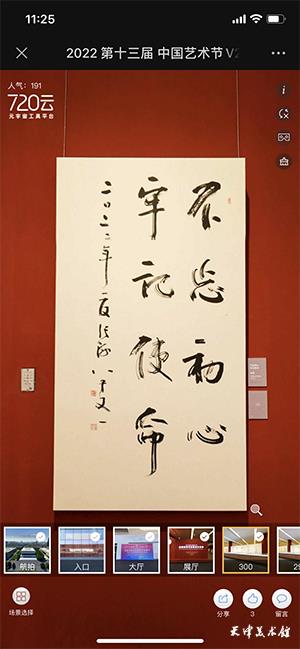 11:25
2022 第十三届 中国艺术节 V2
人气：191
720云
元宇宙工具平台
不忘初心
牢记使命
二〇二二年夏张海八十又一
航拍
入口
大厅
展厅
300
29
场景选择
分享
3
留言
天津美术馆